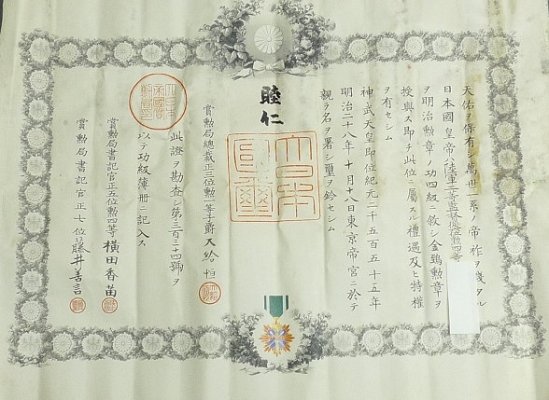 天佑ヲ保有シ萬世一系ノ帝祚ヲ踐タル
日本國皇帝ハ陸軍
ヲ明治勲章ノ功四級ニ敘シ金鵄勲章ヲ
授與ス即チ此位ニ屬スル禮遇及ヒ特權
ヲ有セシム
神武天皇即位紀元二千五百五十五年
明治二十八年十月十八日東京帝宮ニ於テ
親ラ名ヲ署シ璽ヲ鈐セシム
睦仁
大日本國璽
賞勲局総裁正三位勲一等子爵大給恒
此證ヲ勘査シ第三百二十四號ヲ
以テ功級簿冊ニ記入ス
賞勲局書記官正五位勲四等横田香苗
賞勲局書記官正七位藤井善言